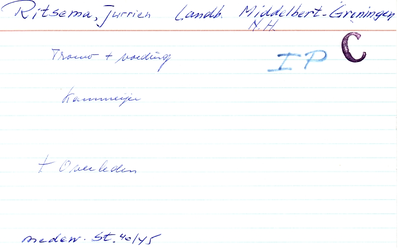 Ritsema, Jurrien Landb. Middelbert-Groningen
N.H.
Trouw + voeding
I P C
Kammeijer
+ Overleden
medew. St. 40/45